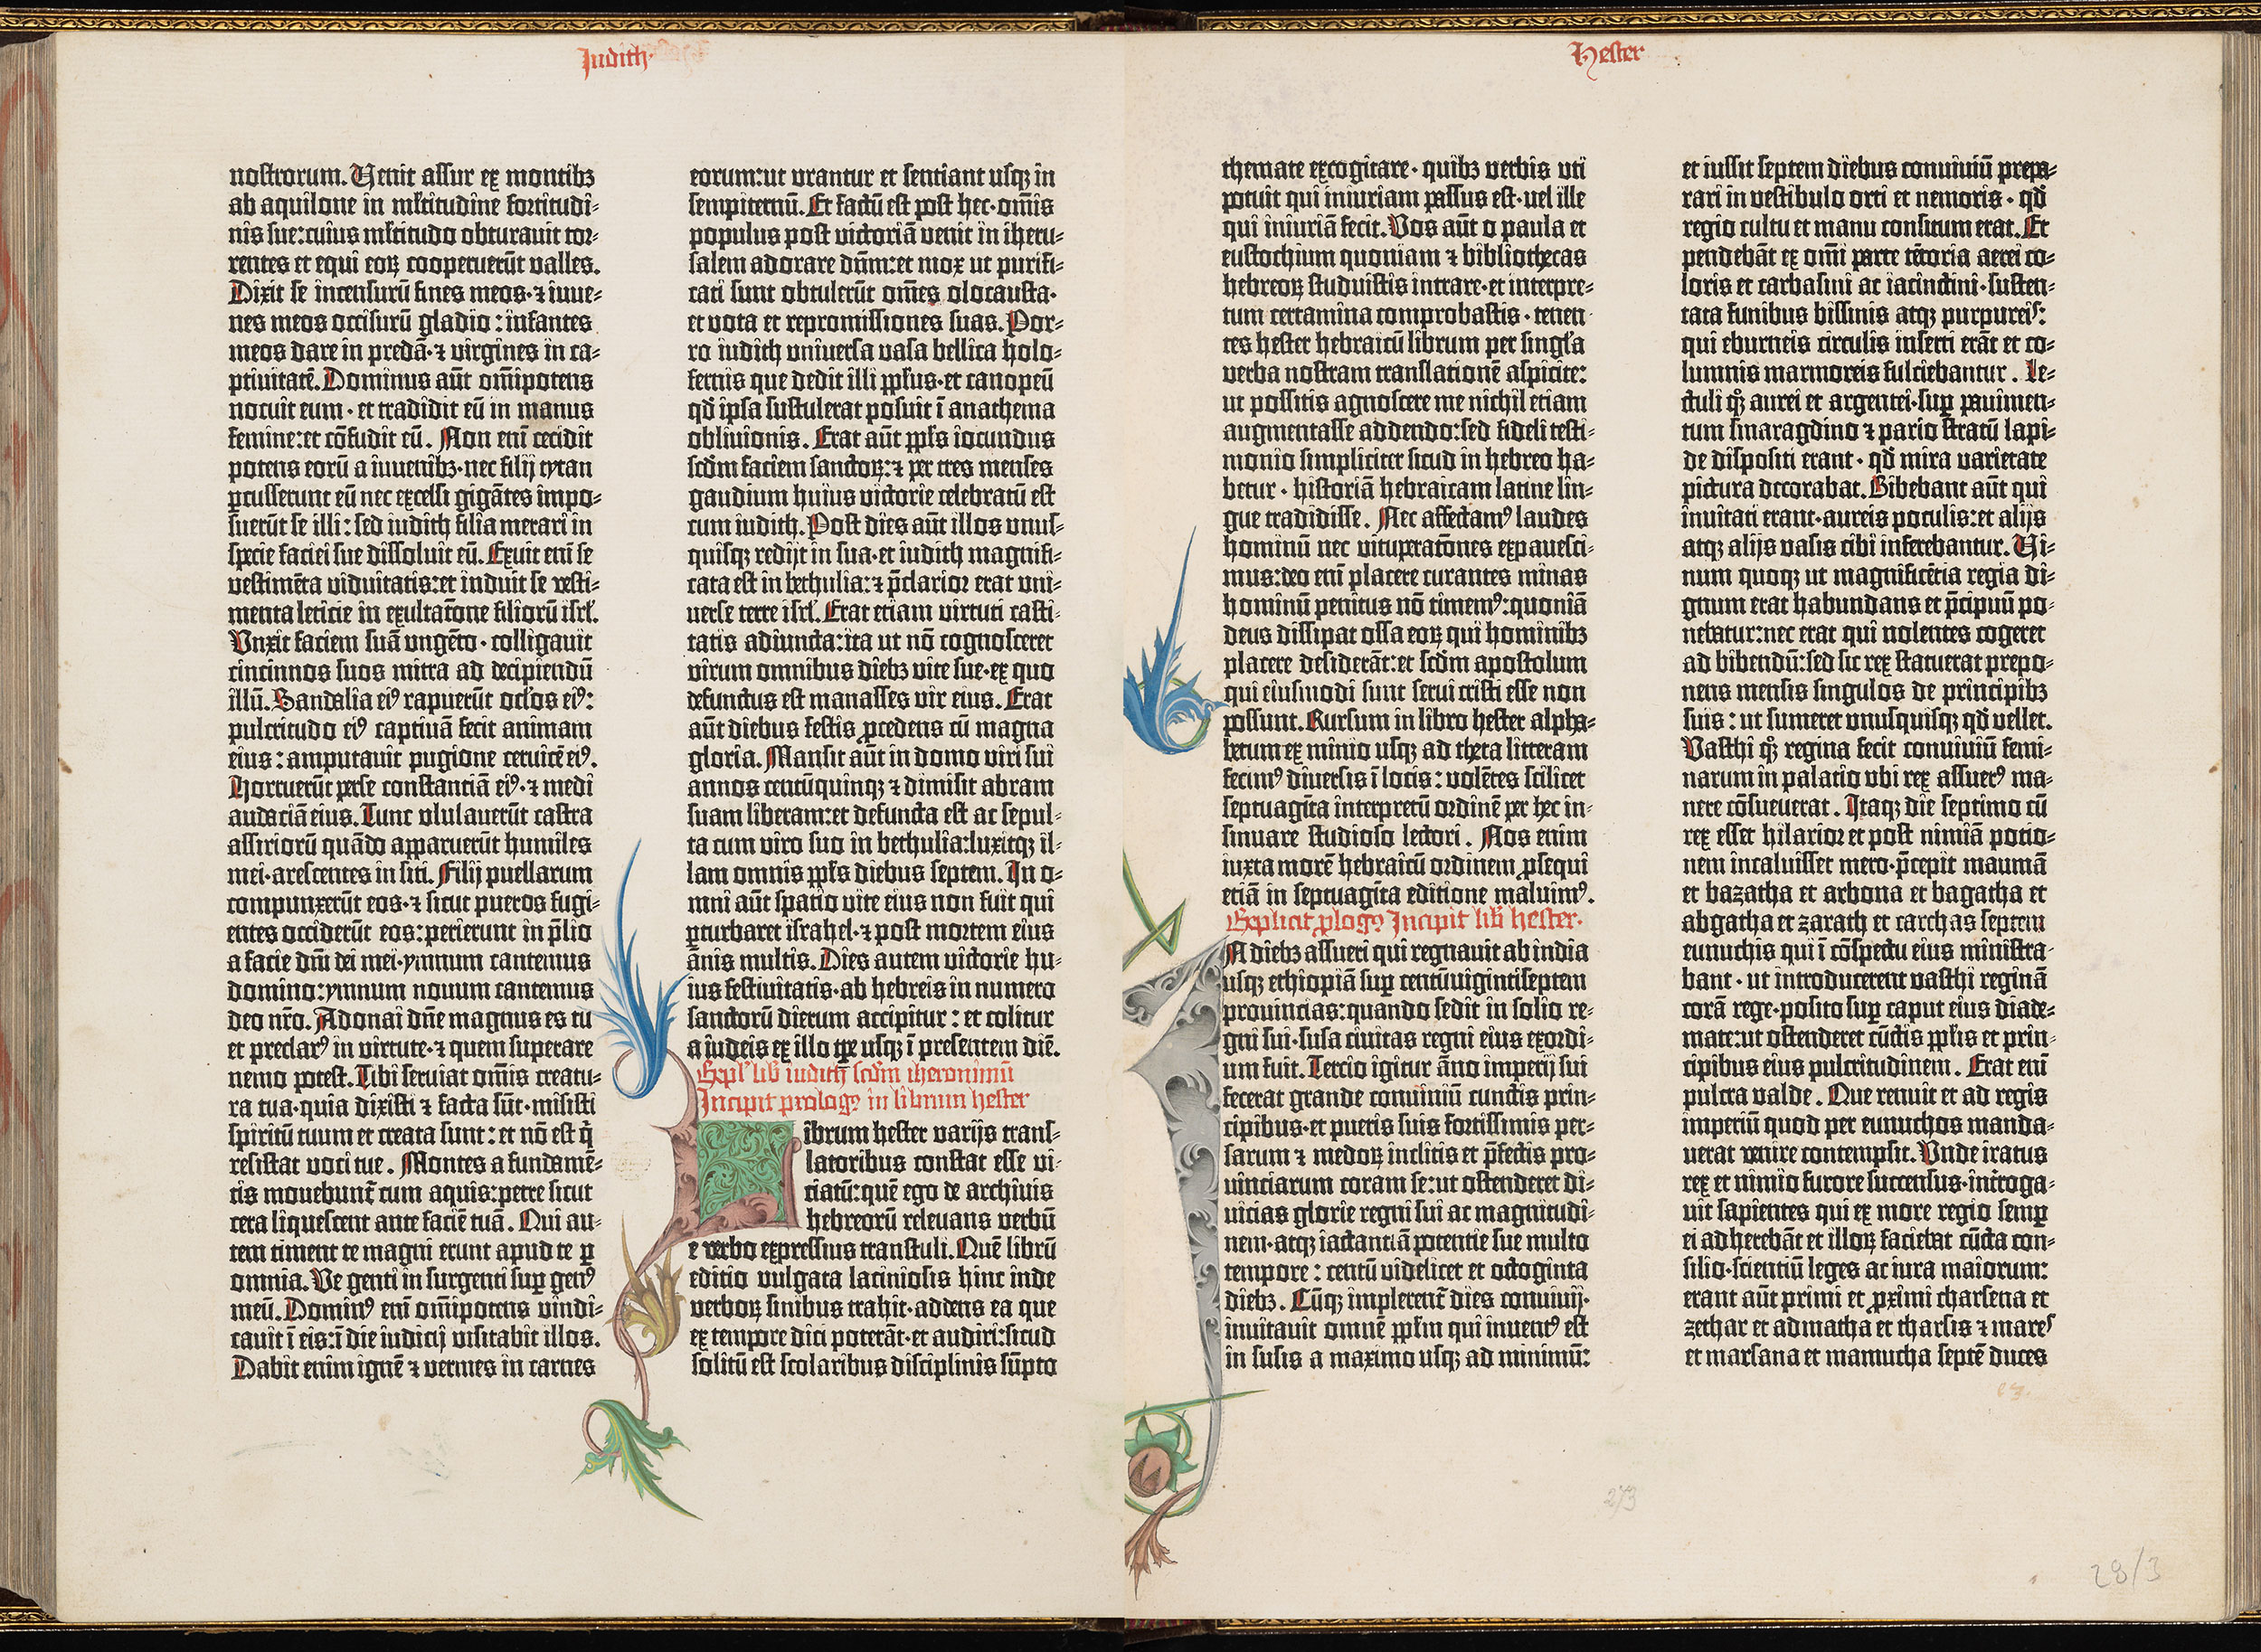 Iudith·
nostrorum. Venit assur ex montibꝫ
ab aquilone in ml̄titudine fortitudi⸗
nis sue: cuius ml̄titudo obturauit tor⸗
rentes et equi eoꝝ cooperuerūt valles.
Dixit se incensurū fines meos· ⁊ iuue⸗
nes meos occisurū gladio: infantes
meos dare in predā· ⁊ virgines in ca⸗
ptiuitatē. Dominus aūt om̄ipotens
nocuit eum· et tradidit eū in manus
femine: et cōfudit eū. Non enī cecidit
potens eorū a iuuenibꝫ· nec filij tytan
ꝑcusserunt eū nec excelsi gigātes impo⸗
suerūt se illi: sed iudith filia merari in
specie faciei sue dissoluit eū. Exuit enī se
vestimēta viduitatis: et induit se vesti⸗
menta leticie in exultatōne filiorū isrl̄.
Vnxit faciem suā vngēto· colligauit
cincinnos suos mitra ad decipiendū
illū. Sandalia eiꝰ rapuerūt oclōs eiꝰ:
pulcritudo eiꝰ captiuā fecit animam
eius: amputauit pugione ceruicē eiꝰ.
Horruerūt perse constantiā eiꝰ· ⁊ medi
audaciā eius. Tunc vlulauerūt castra
assiriorū quādo apparuerūt humiles
mei· arescentes in siti. Filij puellarum
compunxerūt eos· ⁊ sicut pueros fugi⸗
entes occiderūt eos: perierunt in p̄lio
a facie dn̄i dei mei· ymnum cantemus
domino: ymnum nouum cantemus
deo nr̄o. Adonai dn̄e magnus es tu
et preclarꝰ in virtute· ⁊ quem superare
nemo potest. Tibi seruiat om̄is creatu⸗
ra tua· quia dixisti ⁊ facta sūt· misisti
spiritū tuum et creata sunt: et nō est q̄
resistat voci tue. Montes a fundamē⸗
tis mouebunt̄ cum aquis: petre sicut
cera liquescent ante faciē tuā. Qui au⸗
tem timent te magni erunt apud te ꝑ
omnia. Ve genti insurgenti suꝑ genꝰ
meū. Dominꝰ enī om̄ipotens vindi⸗
cauit ī eis: ī die iudicij visitabit illos.
Dabit enim ignē ⁊ vermes in carnes
eorum: ut vrantur et sentiant vsqꝫ in
sempiternū. Et factū est post hec· om̄is
populus post victoriā venit in iheru⸗
salem adorare dn̄m: et mox ut purifi⸗
cati sunt obtulerūt om̄es olocausta·
et vota et repromissiones suas. Por⸗
ro iudith vniuersa vasa bellica holo⸗
fernis que dedit illi pp̄lus· et canopeū
qd̄ ipsa sustulerat posuit ī anathema
obliuionis. Erat aūt pp̄ls iocundus
scdm̄ faciem sanctoꝝ: ⁊ per tres menses
gaudium huius victorie celebratū est
cum iudith. Post dies aūt illos vnus⸗
quisqꝫ redijt in sua· et iudith magnifi⸗
cata est in bethulia: ⁊ p̄clarior erat vni⸗
uerse terre isrl̄. Erat etiam virtuti casti⸗
tatis adiuncta: ita ut nō cognosceret
virum omnibus diebꝫ vite sue· ex quo
defunctus est manasses vir eius. Erat
aūt diebus festis ꝓcedens cū magna
gloria. Mansit aūt in domo viri sui
annos centūquinqꝫ ⁊ dimisit abram
suam liberam: et defuncta est ac sepul⸗
ta cum viro suo in bethulia: luxitqꝫ il⸗
lam omnis pp̄ls diebus septem. In o⸗
mni aūt spatio vite eius non fuit qui
ꝑturbaret israhel· ⁊ post mortem eius
ānis multis. Dies autem victorie hu⸗
ius festiuitatis· ab hebreis in numero
sanctorū dierum accipitur: et colitur
a iudeis ex illo tꝑe usqꝫ ī presentem diē.
Expl' lib̄ iudith scdm̄ iheronimū
Incipit prologꝰ in librum hester
ibrum hester varijs trans⸗
latoribus constat esse vi⸗
ciatū: quē ego de archiuis
hebreorū releuans verbū
e verbo expressius transtuli. Quē librū
editio vulgata laciniosis hinc inde
verboꝝ sinibus trahit· addens ea que
ex tempore dici poterāt· et audiri: sicud
solitū est scolaribus disciplinis sūpto
Hester
themate excogitare· quibꝫ verbis uti
potuit qui iniuriam passus est· uel ille
qui iniuriā fecit. Vos aūt o paula et
eustochium quoniam ⁊ bibliothecas
hebreoꝝ studuistis intrare· et interpre⸗
tum certamina comprobastis· tenen⸗
tes hester hebraicū librum per singl'a
verba nostram translationē aspicite:
ut possitis agnoscere me nichil etiam
augmentasse addendo: sed fideli testi⸗
monio simpliciter sicud in hebreo ha⸗
betur· historiā hebraicam latine lin⸗
gue tradidisse. Nec affectamꝰ laudes
hominū nec vituperatōnes expauesci⸗
mus: deo enī placere curantes minas
hominū penitus nō timemꝰ: quoniā
deus dissipat ossa eoꝝ qui hominibꝫ
placere desiderāt: et scdm̄ apostolum
qui eiusmodi sunt serui cristi esse non
possunt. Rursum in libro hester alpha⸗
betum ex minio usqꝫ ad theta litteram
fecimꝰ diuersis ī locis: volētes scilicet
septuagīta interpretū ordinē per hec in⸗
sinuare studioso lectori. Nos enim
iuxta morē hebraicū ordinem ꝓsequi
etiā in septuagīta editione maluimꝰ.
Explicit ꝓlogꝰ Incipit lib̄ hester·
N diebꝫ assueri qui regnauit ab india
usqꝫ ethiopiā suꝑ centūvigintiseptem
prouincias: quando sedit in solio re⸗
gni sui· susa ciuitas regni eius exordi⸗
um fuit. Tercio igitur āno imperij sui
fecerat grande conuiuiū cunctis prin⸗
cipibus· et pueris suis fortissimis per⸗
sarum ⁊ medoꝝ inclitis et p̄fectis pro⸗
uinciarum coram se: ut ostenderet di⸗
uicias glorie regni sui ac magnitudi⸗
nem· atqꝫ iactantiā potentie sue multo
tempore: centū videlicet et octoginta
diebꝫ. Cūqꝫ implerent̄ dies conuiuij·
inuitauit omnē pp̄lm qui inuentꝰ est
in susis a maximo usqꝫ ad minimū:
et iussit septem diebus conuiuiū prepa⸗
rari in vestibulo orti et nemoris· qd̄
regio cultu et manu consitum erat. Et
pendebāt ex om̄i parte tētoria aerei co⸗
loris et carbasini ac iacinctini· susten⸗
tata funibus bissinis atqꝫ purpureis:
qui eburneis circulis inserti erāt et co⸗
lumnis marmoreis fulciebantur. Le⸗
ctuli qꝫ aurei et argentei· suꝑ pauimen⸗
tum smaragdino ⁊ pario stratū lapi⸗
de dispositi erant· qd̄ mira varietate
pictura decorabat. Bibebant aūt qui
inuitati erant· aureis poculis: et alijs
atqꝫ alijs vasis cibi inferebantur. Vi⸗
num quoqꝫ ut magnificētia regia di⸗
gnum erat habundans et p̄cipuū po⸗
nebatur: nec erat qui nolentes cogeret
ad bibendū: sed sic rex statuerat prepo⸗
nens mensis singulos de principibꝫ
suis: ut sumeret vnusquisqꝫ qd̄ vellet.
Vasthi qꝫ regina fecit conuiuiū femi⸗
narum in palacio vbi rex assuerꝰ ma⸗
nere cōsueuerat. Itaqꝫ die septimo cū
rex esset hilarior et post nimiā potio⸗
nem incaluisset mero· p̄cepit maumā
et bazatha et arbona et bagatha et
abgatha et zarath et carchas septem
eunuchis qui ī cōspectu eius ministra⸗
bant· ut introducerent vasthi reginā
corā rege· posito suꝑ caput eius diade⸗
mate: ut ostenderet cūctis pp̄lis et prin⸗
cipibus eius pulcritudinem. Erat enī
pulcra valde. Que renuit et ad regis
imperiū quod per eunuchos manda⸗
uerat venire contempsit. Vnde iratus
rex et nimio furore succensus· int̄roga⸗
uit sapientes qui ex more regio semꝑ
ei adherebāt et illoꝝ faciebat cūcta con⸗
silio· scientiū leges ac iura maiorum:
erant aūt primi et ꝓximi charsena et
zethar et admatha et tharsis ⁊ mares
et marsana et mamucha septē duces
273
28/3